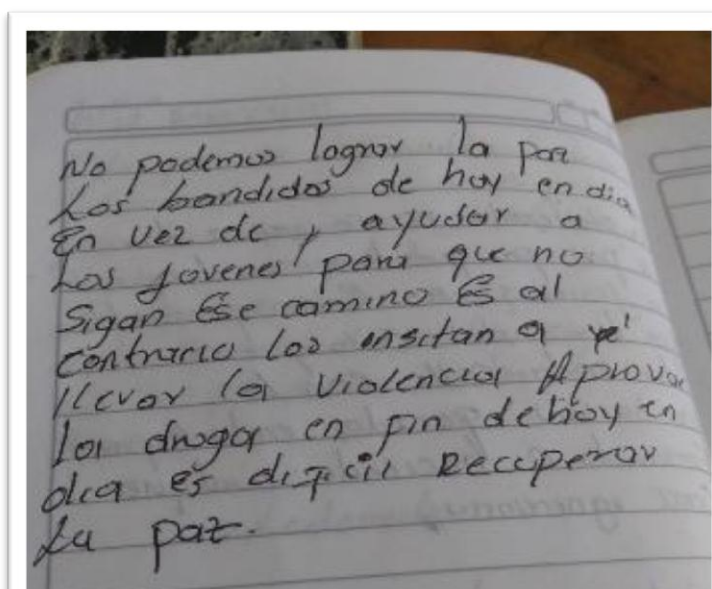 No podemos lograr la paz
Los bandidos de hoy en dia
En vez de, ayudar a
Los Jovenes para que no
Sigan Ese camino Es al
contrario los insitan a
llevar la violencia A provar
la droga en fin de hoy en
dia es dificil Recuperar
La paz.